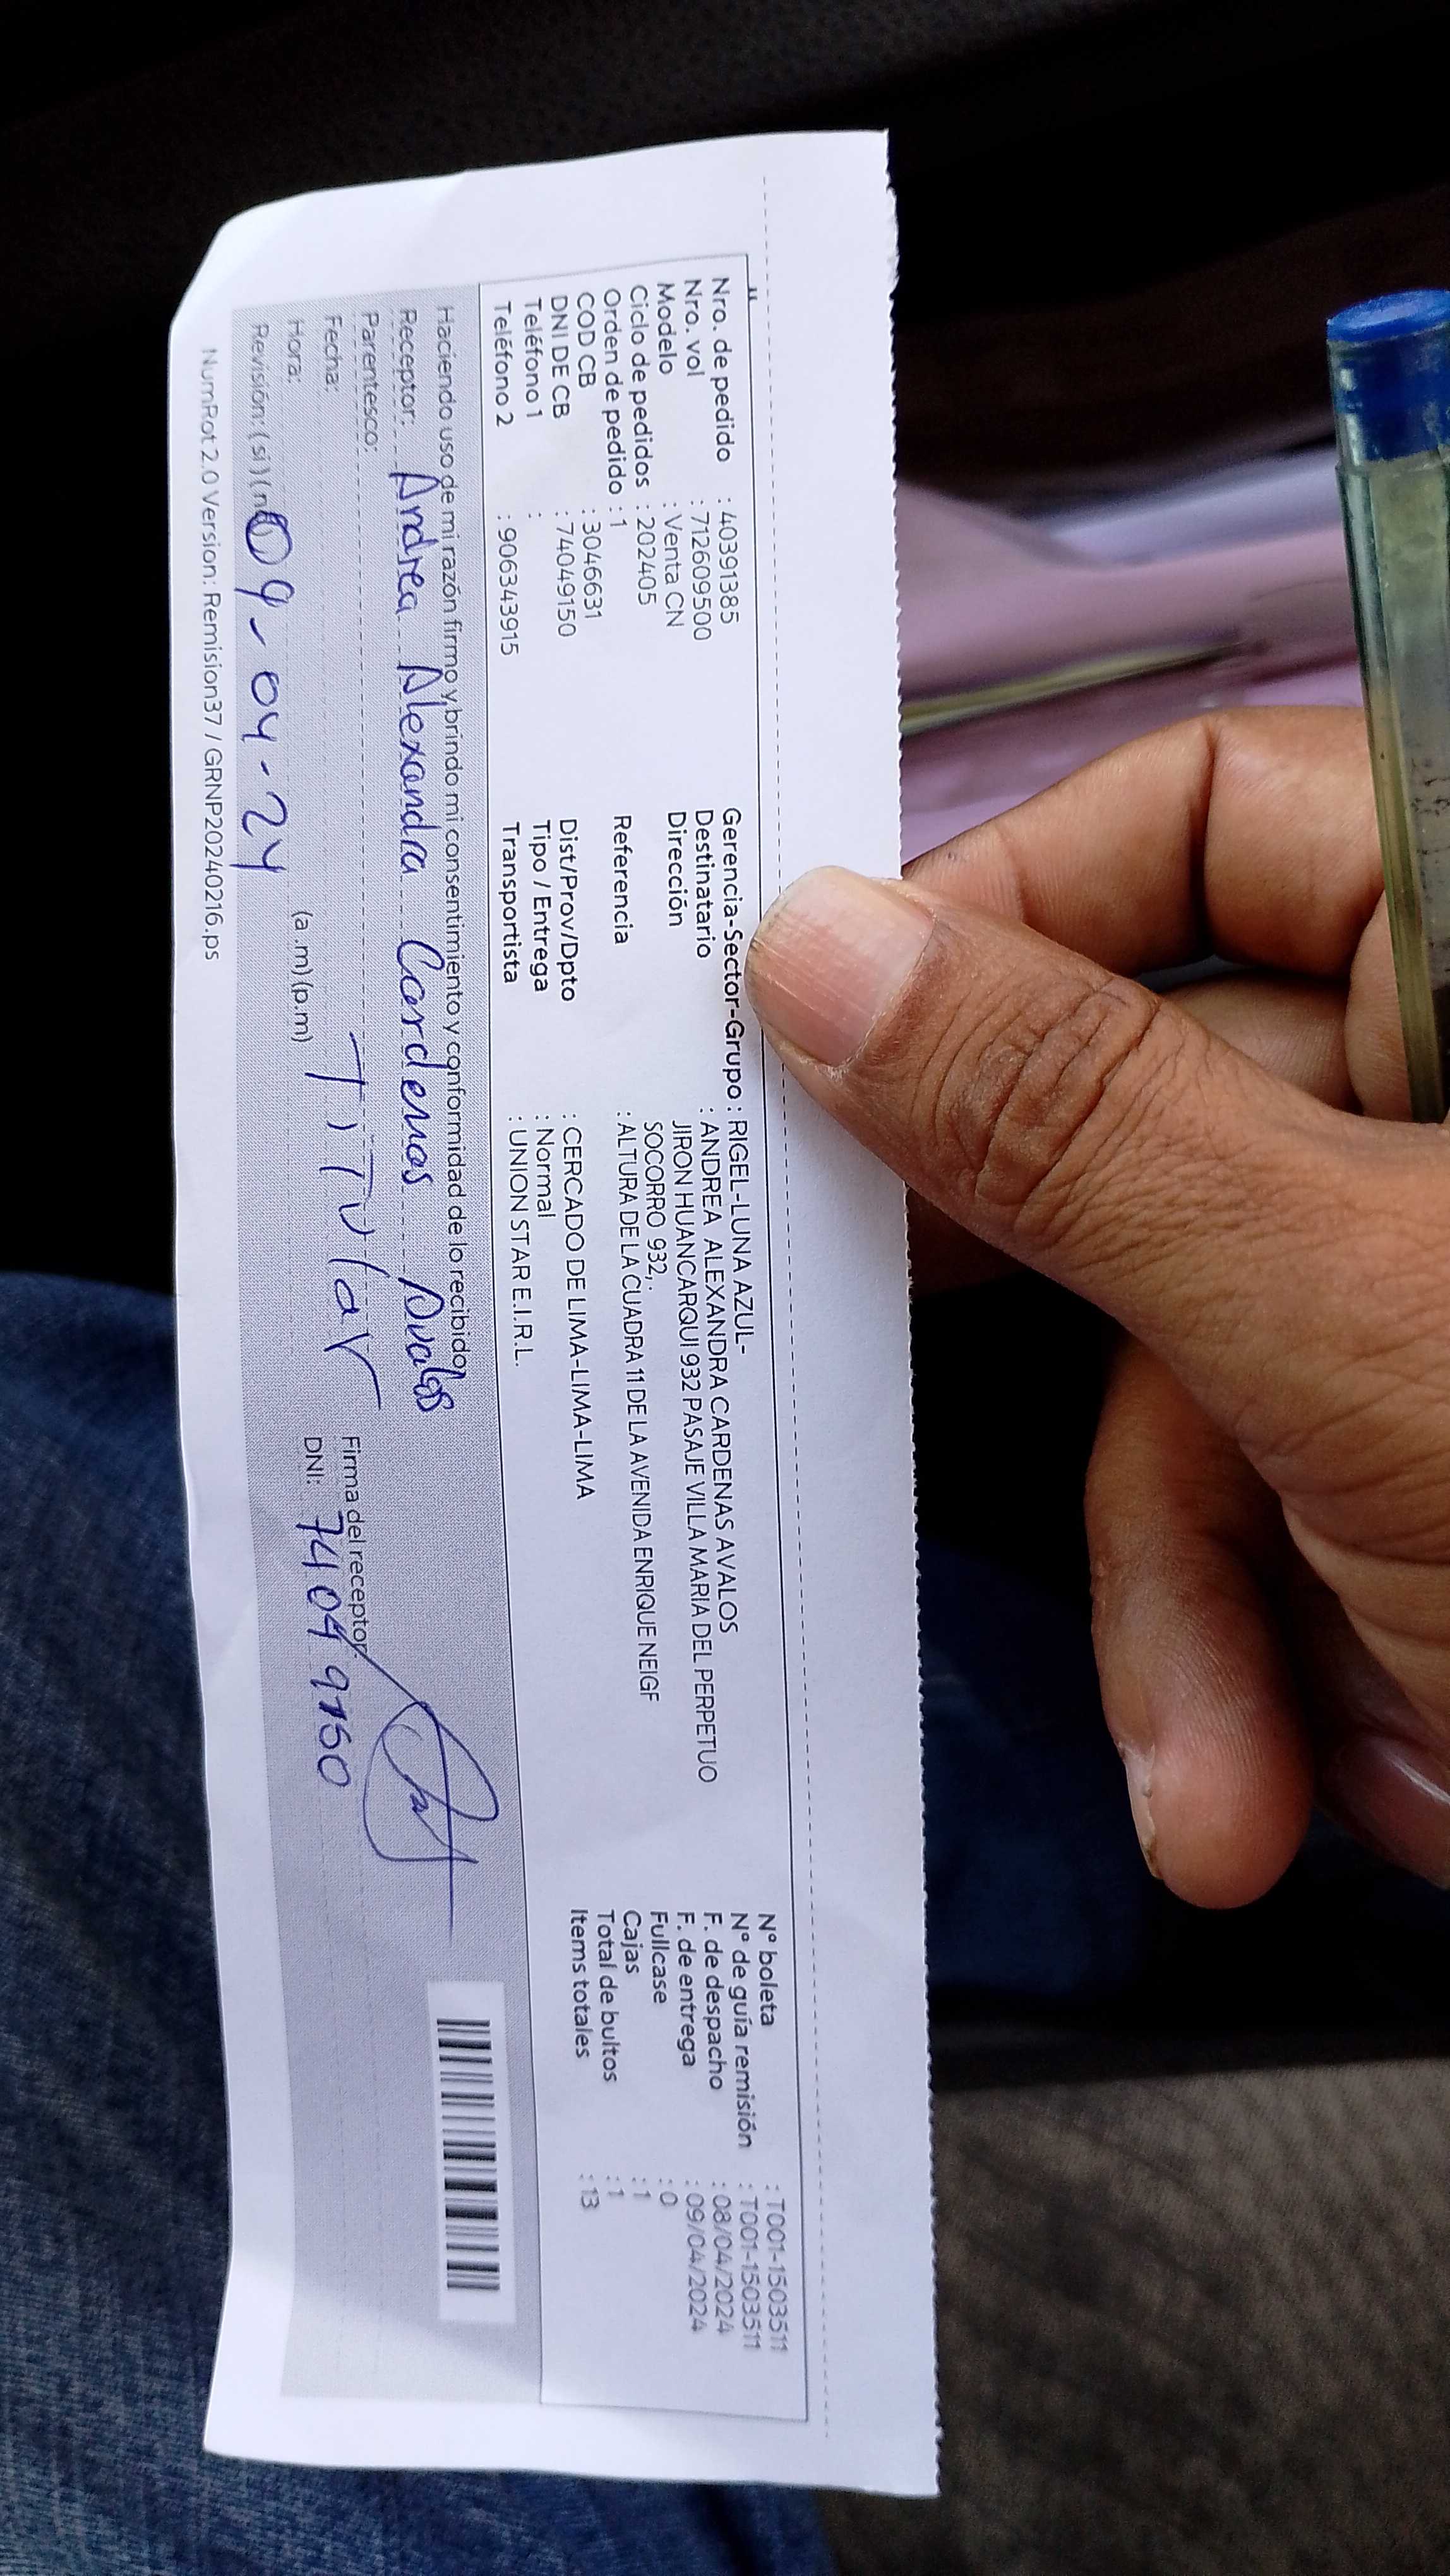 Nro. de pedido : 40391385
Nro. vol : 712609500
Modelo : Venta CN
Ciclo de pedidos : 202405
Orden de pedido : 1
COD CB : 3046631
DNI DE CB : 74049150
Teléfono 1 :
Teléfono 2 : 906343915
Gerencia-Sector-Grupo : RIGEL-LUNA AZUL-
Destinatario : ANDREA ALEXANDRA CARDENAS AVALOS
Dirección JIRON HUANCARQUI 932 PASAJE VILLA MARIA DEL PERPETUO
SOCORRO 932,.
Referencia : ALTURA DE LA CUADRA 11 DE LA AVENIDA ENRIQUE NEIGF
Dist/Prov/Dpto : CERCADO DE LIMA-LIMA-LIMA
Tipo / Entrega : Normal
Transportista : UNION STAR E.I.R.L.
N° boleta : T001-1503511
N° de guía remisión : T001-1503511
F. de despacho : 08/04/2024
F. de entrega : 09/04/2024
Fullcase : 0
Cajas : 1
Total de bultos : 1
Items totales : 13
Haciendo uso de mi razón firmo y brindo mi consentimiento y conformidad de lo recibido,
Receptor: Andrea Alexandra Cardenas Avalos
Parentesco: TiTular
Firma del receptor:
Fecha:
DNI: 74049150
Hora: (a .m) (p.m)
Revisión: (si) (no) 09-04-24
NumRot 2.0 Version: Remision37 / GRNP20240216.ps